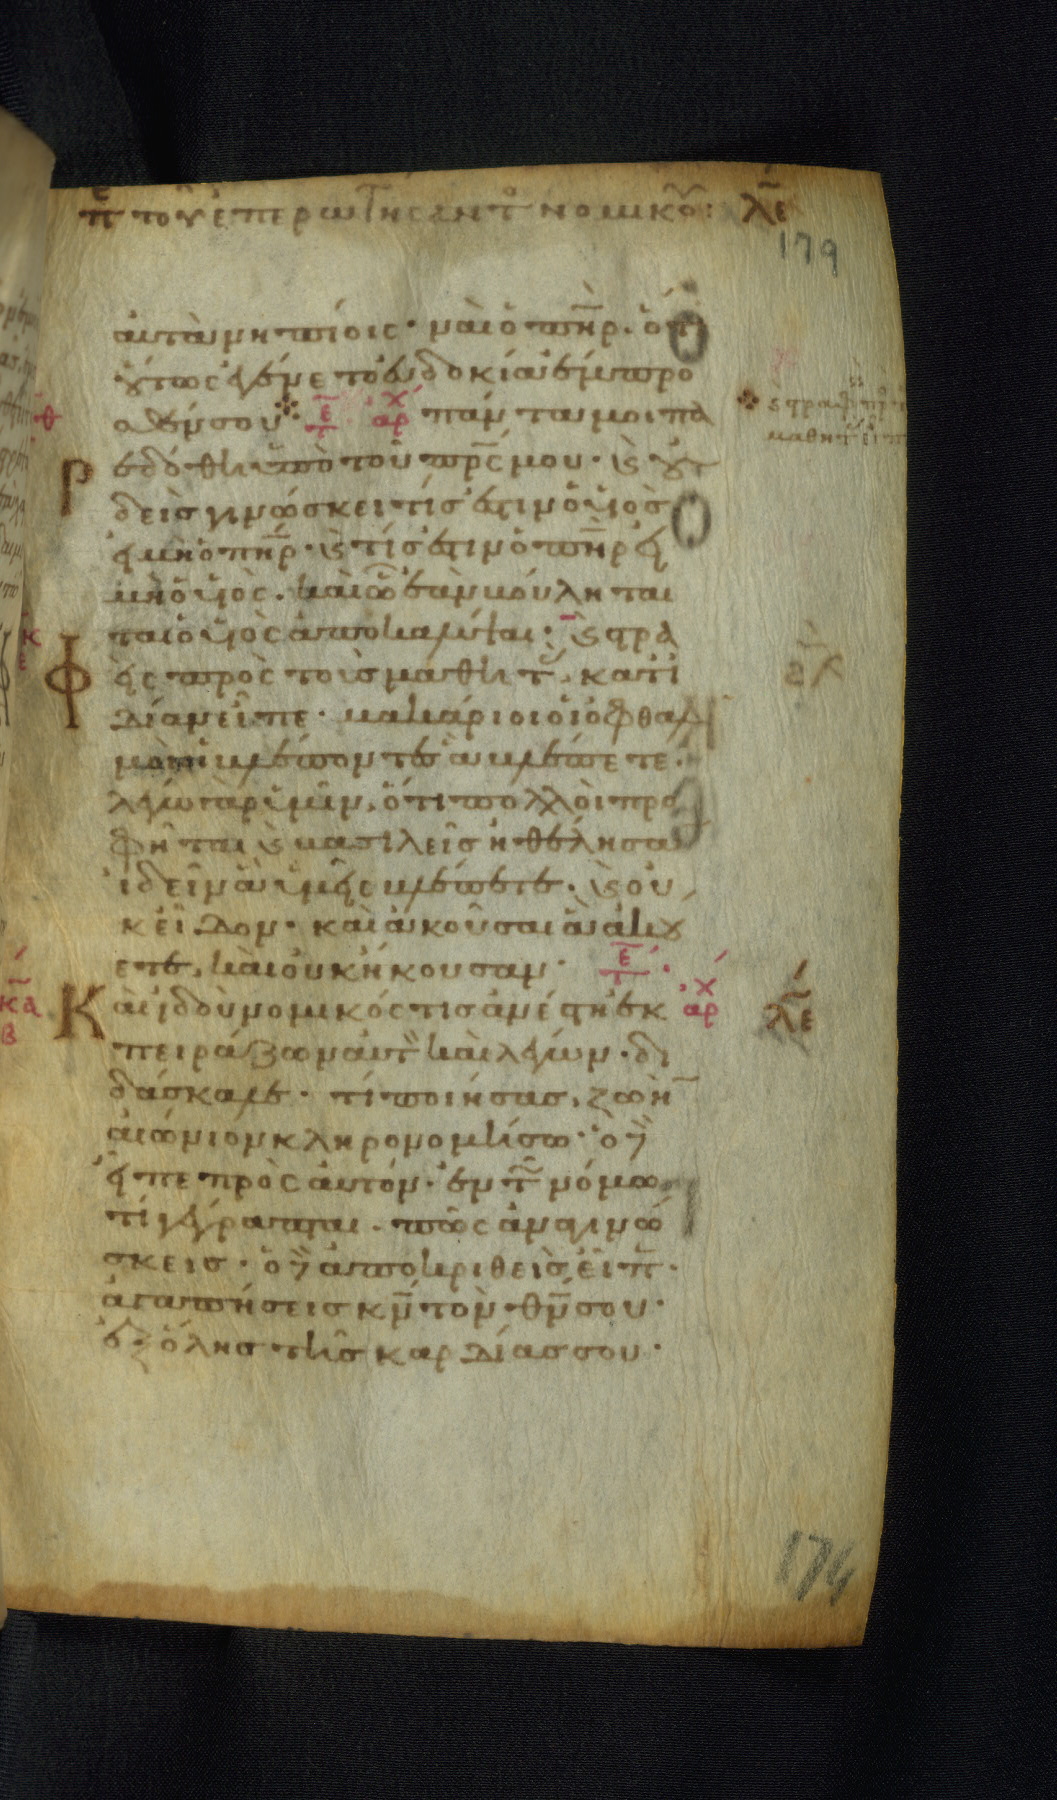 πε τοῦ ἐπερωτησαντ νομικοῦ: λε
179
αὐτὰ νηπίοις· ναὶ ὁ πηρ. ὅτι
οὕτως ἐγένετο εὐδοκία ἔμπρο
σθέν σου· τε αρχ πάντα μοι πα
ρεδόθη ὑπὸ τοῦ πρς μου· κ οὐ
δεὶς γινώσκει τίς ἐστιν ὁ υἱὸς
εἰ μὴ ὁ πηρ· κ τίς ἐστιν ὁ πηρ εἰ
μὴ ὁ υἱὸς. καὶ ὧ ἐὰν βούλη ται
ται ὁ υἱὸς ἀποκαλύψαι· κ στρα
φεὶς πρὸς τοὺς μαθητ κατι
δίαν εἶπε· μακάριοι οἱ ὀφθαλ
μοὶ οἱ βλέποντες ἃ βλέπετε·
λέγω γὰρ ὑμῖν, ὅτι πολλοὶ προ
φῆται κ βασιλεῖς ἠθέλησαν
ἰδεῖν ἃ ὑμεῖς βλέπετε· κ οὐ
κ εἶδον· καὶ ἀκοῦσαι ἃ ἀκού
ετε, καὶ οὐκ ἤκουσαν· τε
Καὶ ἰδοὺ νομικός τις ἀνέστη ἐκ αρχ λε
πειράζων αὐτ καὶ λέγων· δι
δάσκαλε· τί ποιήσας, ζωὴ
αἰώνιον κληρονομήσω· ὁ δὲ
εἶπε πρὸς αὐτόν· ἐν τῶ νόμω
τί γέγραπται. πῶς ἀναγινώ
σκεις· ὁ δὲ ἀποκριθεὶς εἶπ·
ἀγαπήσεις κν τὸν θν σου·
ἐξ ὅλης τῆς καρδίας σου·
174